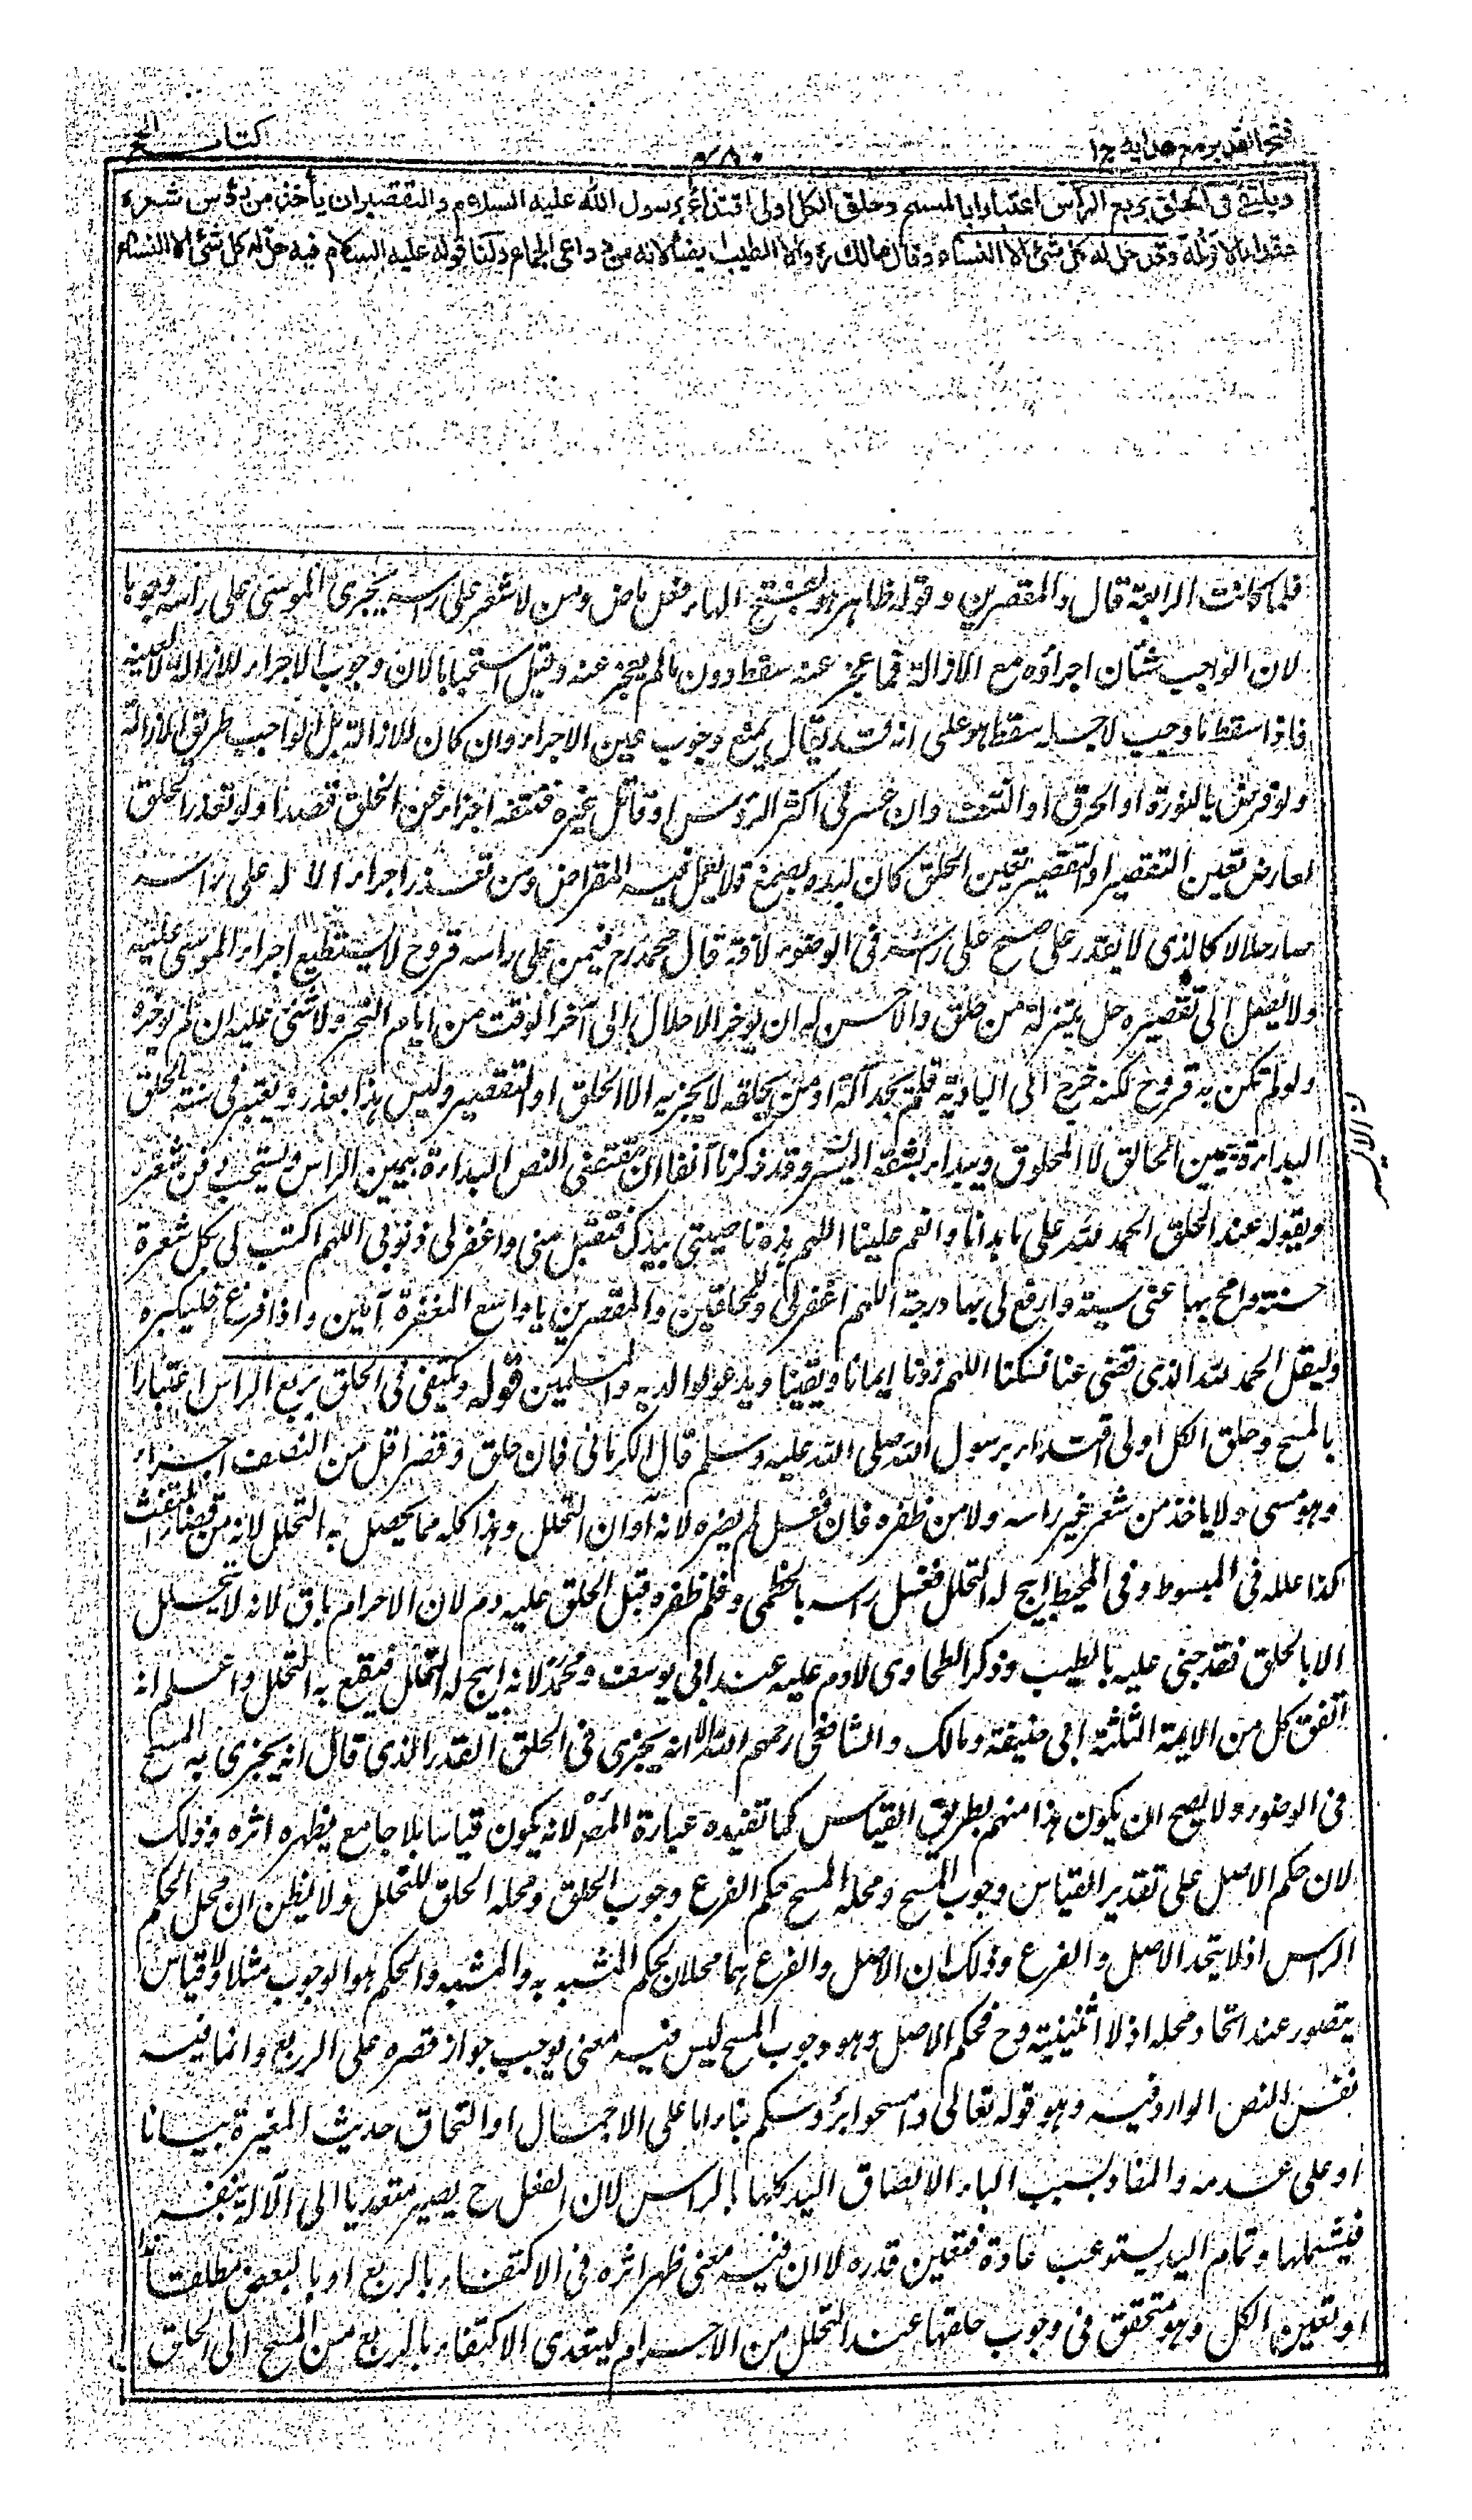 فتح القدير مع هدايه ج ١
كتاب الحج
ويكتفي في الحلق بربع الرأس اعتبارا بالمسح وحلق الكل اولى اقتداء برسول الله عليه السلام والتقصير ان يأخذ من رؤس شعره
مقدار الانملة وقد حل له كل شئ الا النساء وقال مالك رح والا الطيب ايضا لانه من دواعى الجماع ولنا قوله عليه السلام فيه حل له كل شئ الا النساء
فلما كانت الرابعة قال والمقصرين وقوله ظاهر هو بفتح الهاء فعل ماض ومن لا شعر على راسه يجرى الموسى على راسه وجوبا
لان الواجب شيئان اجراؤه مع الازالة فما عجز عنه سقط دون ما لم يعجز عنه وقيل استحبابا لان وجوب الاجراء للازالة لا لعينه
فاذا سقط ما وجب لاجله سقط هو على انه قد يقال يمنع وجوب عين الاجراء وان كان للازالة بل الواجب طريق الازالة
ولو فرض بالنورة او الحرق او النتف وان عسر فى اكثر الرؤس او قاتل غيره فنتفه اجزاء عن الحلق قصدا ولو تعذر الحلق
لعارض تعين التقصير او التقصير تعين الحلق كان لبده بصمغ فلا يعمل فيه المقراض ومن تعذر اجراء الالة على راسه
صار حلالا كالذى لا يقدر على مسح على راسه فى الوضوء لآفة قال محمد رح فيمن على راسه قروح لا يستطيع اجراء الموسى عليه
ولا يصل الى تقصيره حل بمنزلة من حلق والاحسن له ان يؤخر الاحلال الى آخر الوقت من ايام النحر ولا شئ عليه ان لم يؤخره
ولو لم تكن به قروح لكنه خرج الى البادية فلم يجد آلة او من يحلقه لا يجزيه الا الحلق او التقصير وليس هذا بعذر ويعتبر فى سنة الحلق
البداءة بيمين الحالق لا المحلوق ويبداء بشقه الايسر وقد ذكرنا آنفا ان مقتضى النص البداءة بيمين الراس ويستحب دفن شعره
ويقول عند الحلق الحمد لله على ما هدانا وانعم علينا اللهم هذه ناصيتى بيدك فتقبل منى واغفر لى ذنوبى اللهم اكتب لى بكل شعرة
حسنة وامح بها عنى سيئة وارفع لى بها درجة اللهم اغفر لى وللمحلقين والمقصرين يا واسع المغفرة آمين واذا فرغ فليكبره
وليقل الحمد لله الذى قضى عنا نسكنا اللهم زدنا ايمانا ويقينا ويدعو لوالديه والمسلمين قوله ويكتفى فى الحلق بربع الراس اعتبارا
بالمسح وحلق الكل اولى اقتداء برسول الله صلى الله عليه وسلم قال الكرمانى فان حلق وقصر اقل من النصف اجزاء
وهو مسئ ولا ياخذ من شعر غير راسه ولا من ظفره فان فعل لم يضره لانه اوان التحلل وهذا كله مما يحصل به التحلل لانه من قضاء التفث
كذا علله فى المبسوط وفى المحيط ابيح له التحلل فغسل راسه بالخطمى وقلم ظفره قبل الحلق عليه دم لان الاحرام باق لانه لا يتحلل
الا بالحلق فقد جنى عليه بالطيب وذكر الطحاوى لا دم عليه عند ابى يوسف ومحمد لانه ابيح له التحلل فيقع به التحلل واعلم انه
اتفق كل من الايمة الثلثة ابى حنيفة ومالك والشافعى رحمهم الله الا انه يجزى فى الحلق القدر الذى قال انه يجزى به المسح
فى الوضوء ولا يصح ان يكون هذا منهم بطريق القياس كما تفيده عبارة المص لانه يكون قياسا بلا جامع يظهر اثره وذلك
لان حكم الاصل على تقدير القياس وجوب المسح ومحله المسح حكم الفرع وجوب الحلق ومحله الحلق للتحلل ولا يظن ان محل الحكم
الراس اذ لا يتحد الاصل والفرع وذلك ان الاصل والفرع هما محلان لحكم المشبه به والمشبه والحكم هو الوجوب مثلا ولا قياس
يتصور عند اتحاد محله اذ لا اثنينية وح فحكم الاصل وهو وجوب المسح ليس فيه معنى يوجب جواز قصره على الربع وانما فيه
نفس النص الوارد فيه وهو قوله تعالى وامسحوا برؤسكم بناء اما على الاجمال او التحاق حديث المغيرة بيانا
او على عدمه والمفاد بسبب الباء الالصاق اليد كلها بالراس لان الفعل ح يصير متعديا الى الآلة بنفسه
فيشملها وتمام اليد يستوعب عادة فتعين قدره لا ان فيه معنى ظهر اثره فى الاكتفاء بالربع او بالبعض مطلقا
او تعين الكل وهو متحقق فى وجوب حلقها عند التحلل من الاحرام ليتعدى الاكتفاء بالربع من المسح الى الحلق